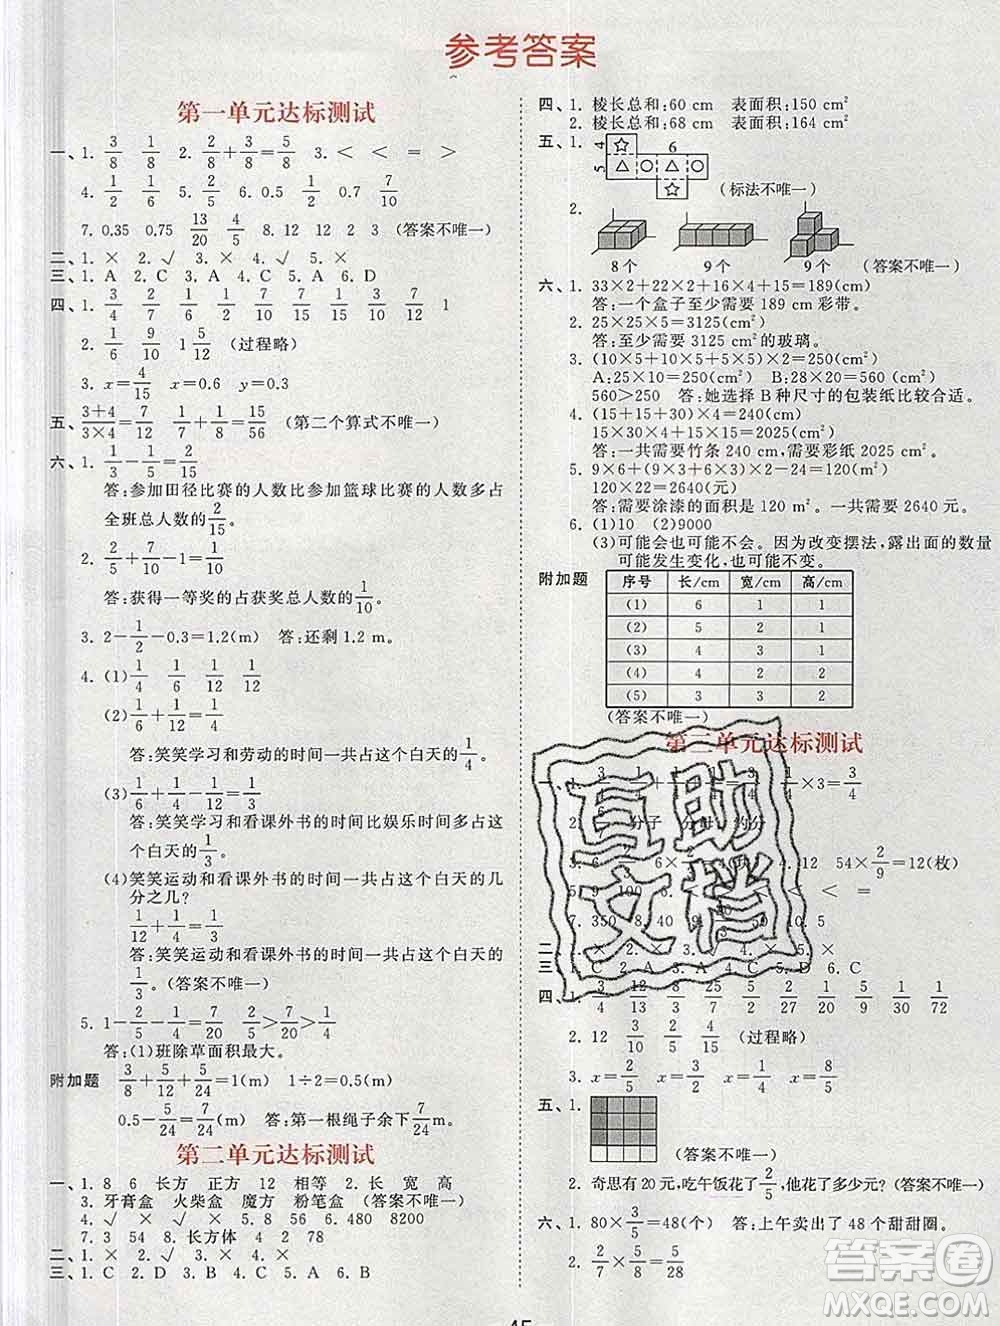 参考答案
第一单元达标测试
一、1. 3/8 1/8 2. 2/8+3/8=5/8 3. < < = >
4. 1/2 1/5 5. 5/6 6. 0.5 1/2 0.7 7/10
7. 0.35 0.75 13/20 4/5 8. 12 12 2 3 (答案不唯一)
二、1. × 2. √ 3. × 4. ×
三、1. A 2. C 3. A 4. C 5. A 6. D
四、1. 3/4 1/7 1/6 1/2 7/10 7/15 1/12 7/6 1
2. 1/6 9/10 1 5/12 (过程略)
3. x=4/5 x=0.6 y=0.3
五、(3+4)/(3×4)=7/12 1/7+1/8=15/56 (第二个算式不唯一)
六、1. 1/3-1/5=2/15
答:参加田径比赛的人数比参加篮球比赛的人数多占
全班总人数的2/15。
2. 1/2+3/5-1=1/10
答:获得一等奖的占获奖总人数的1/10。
3. 2-1/2-0.3=1.2(m) 答:还剩1.2 m。
4. (1)1/4 1/6 1/12 1/4
(2)1/6+1/12=1/4
答:笑笑学习和劳动的时间一共占这个白天的1/4。
(3)1/4+1/4-1/6=1/3
答:笑笑学习和看课外书的时间比娱乐时间多占这
个白天的1/3。
(4)笑笑运动和看课外书的时间一共占这个白天的几
分之几?
1/12+1/4=1/3
答:笑笑运动和看课外书的时间一共占这个白天的
1/3。(答案不唯一)
5. 1-2/5-1/4=7/20 2/5>7/20>1/4
答:(1)班除草面积最大。
附加题 3/8+5/12+5/24=1(m) 1÷2=0.5(m)
0.5-5/24=7/24(m) 答:第一根绳子余下7/24 m。
第二单元达标测试
一、1. 8 6 长方 正方 12 相等 2. 长 宽 高
3. 牙膏盒 火柴盒 魔方 粉笔盒 (答案不唯一)
4. √ × √ × 5. 8 56 6. 480 8200
7. 3 54 8. 长方体 4 2 78
二、1. × 2. √ 3. × 4. ×
三、1. C 2. A 3. C 4. A 5. B
四、1. 棱长总和:60 cm 表面积:150 cm²
2. 棱长总和:68 cm 表面积:164 cm²
五、1. 5 4 6 (标法不唯一)
2.
8个 9个 9个 (答案不唯一)
六、1. 33×2+22×2+16×4+15=189(cm)
答:一个盒子至少需要189 cm彩带。
2. 25×25×5=3125(cm²)
答:至少需要3125 cm²的玻璃。
3. (10×5+10×5+5×5)×2=250(cm²)
A:25×10=250(cm²) B:28×20=560(cm²)
560>250 答:她选择B种尺寸的包装纸比较合适。
4. (15+15+30)×4=240(cm)
15×30×4+15×15=2025(cm²)
答:一共需要竹条240 cm,需要彩纸2025 cm²。
5. 9×6+(9×3+6×3)×2-12×2=120(m²)
120×22=2640(元)
答:需要涂漆的面积是120 m²,一共需要花2640元。
6. (1)10 (2)9000
(3)可能会也可能不会。因为改变摆法,露出面的数量
可能发生变化,也可能不变。
附加题
序号 长/cm 宽/cm 高/cm
(1) 6 1 1
(2) 5 2 1
(3) 4 3 1
(4) 4 2 2
(5) 3 3 2
(答案不唯一)
第三单元达标测试
×3=3/4
分子
4. 12 54×2/9=12(枚)
5. 9 100
7. 350 8. 40 10. 5
5. × 6. C
四、1. 3/4 4/13 8/3 25/7 5/2 2/27 1/20 5/9 1/130 1/72
2. 12 3/10 2/5 4/15 (过程略)
3. x=2/5 x=1/4 x=8/5
五、1. (答案不唯一)
2. 奇思有20元,吃午饭花了2/5,他花了多少元?(答案不唯一)
六、1. 80×3/5=48(个) 答:上午卖出了48个甜甜圈。
2. 2/7×5/8=5/28
45
互助文档
答案圈
MXQE.COM